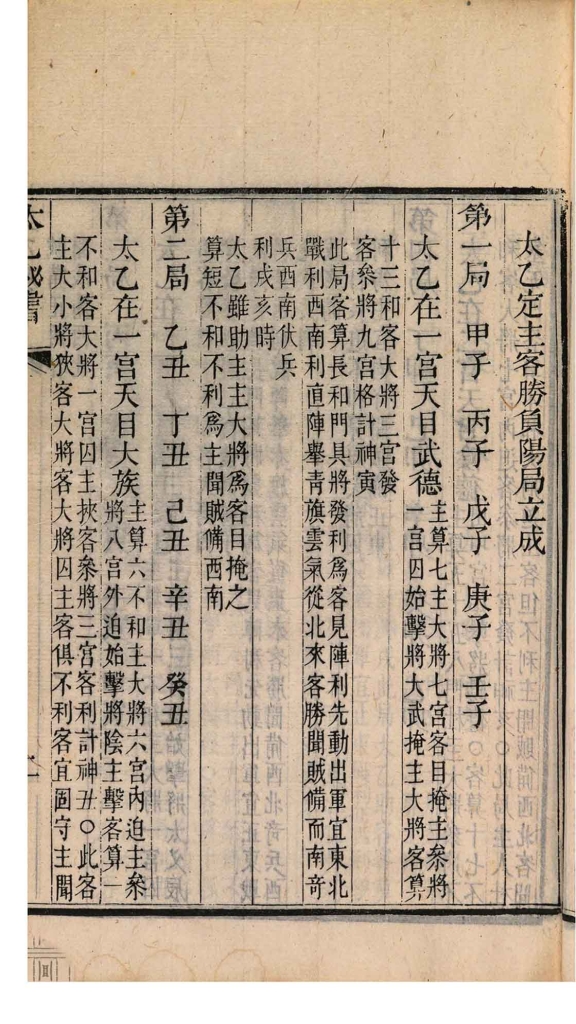 太乙定主客勝負陽局立成
第一局 甲子 丙子 戊子 庚子 壬子
太乙在一宫天目武德
主算七主大將七宫客目掩主叅將
一宫囚始擊將大武掩主大將客算
十三和客大將三宫發
客叅將九宫格計神寅
此局客算長和門具將發利為客見陣利先動出軍宜東北
戰利西南利直陣舉青旗雲氣從北來客勝聞賊備而南竒
兵西南伏兵
利戌亥時
太乙雖助主主大將為客目掩之
算短不和不利為主聞賊備西南
第二局 乙丑 丁丑 己丑 辛丑 癸丑
太乙在一宫天目大族
主算六不和主大將六宫內迫主叅
將八宫外迫始擊將陰主擊客算一
不和客大將一宫囚主挾客叅將三宫客利計神丑〇此客
主大小將狹客大將客大將囚主客俱不利客宜固守主聞
太乙秘書